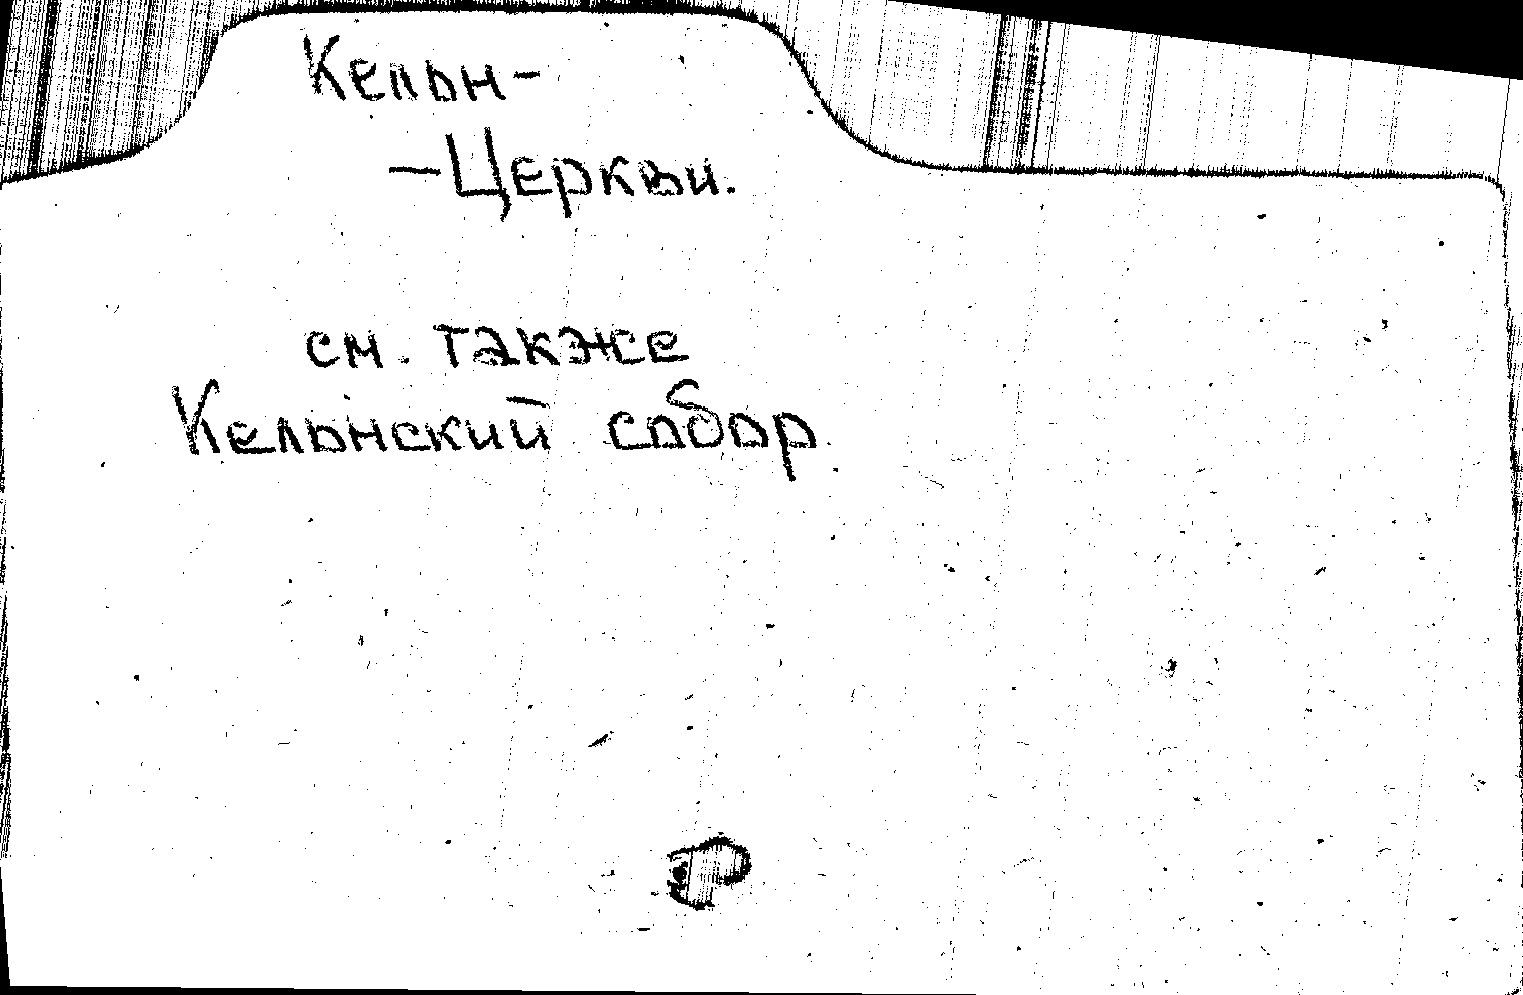 Кельн-
-Церкви.
см. также
Кельнский собор